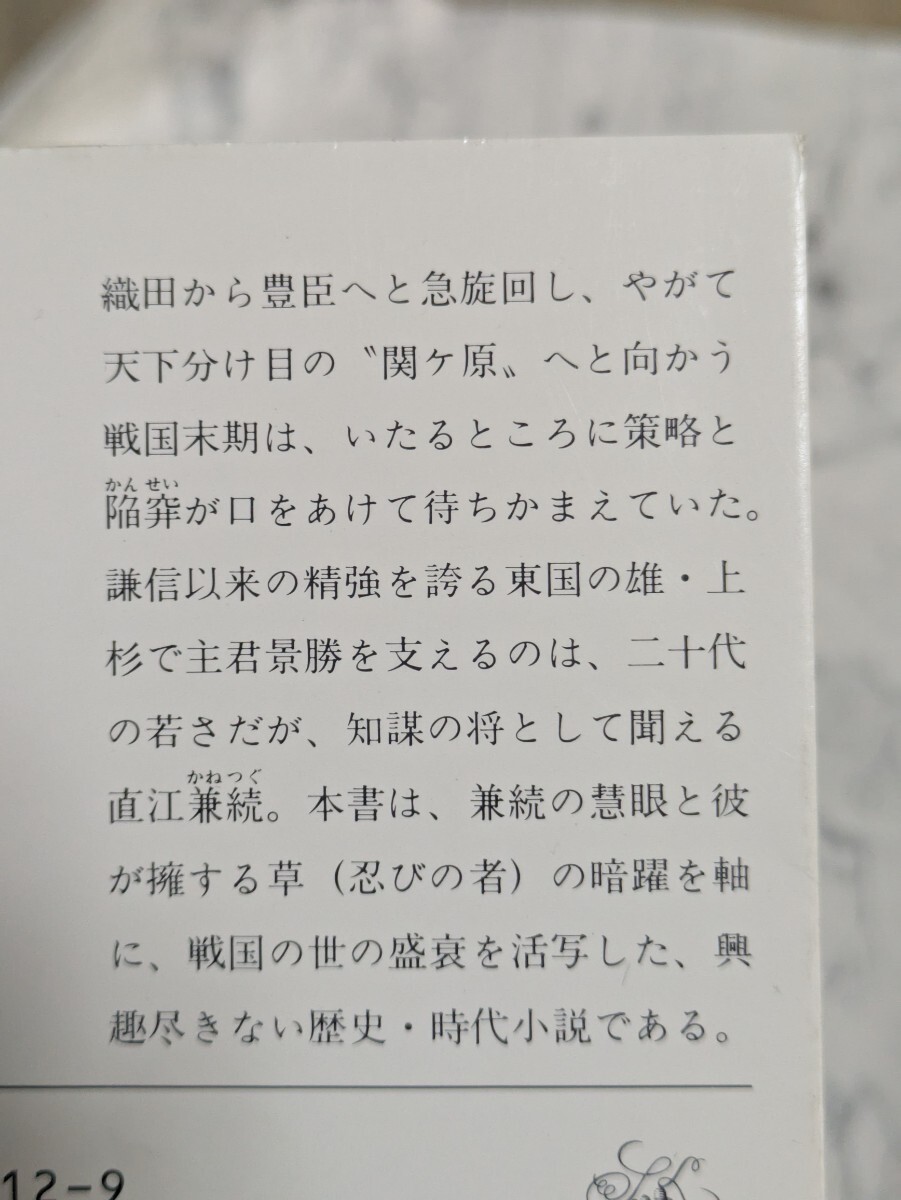 織田から豊臣へと急旋回し、やがて
天下分け目の〝関ケ原〟へと向かう
戦国末期は、いたるところに策略と
かんせい
陥穽が口をあけて待ちかまえていた。
謙信以来の精強を誇る東国の雄・上
杉で主君景勝を支えるのは、二十代
の若さだが、知謀の将として聞える
かねつぐ
直江兼続。本書は、兼続の慧眼と彼
が擁する草（忍びの者）の暗躍を軸
に、戦国の世の盛衰を活写した、興
趣尽きない歴史・時代小説である。
12-9